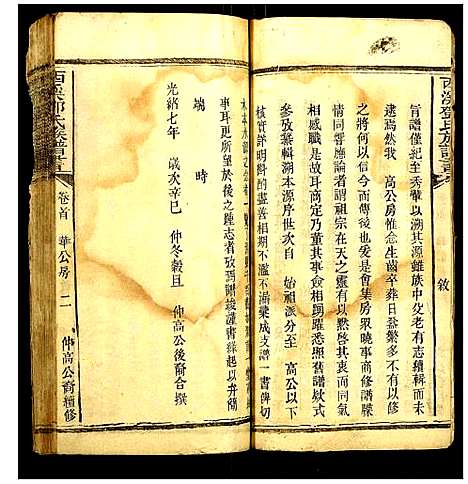 西溪鄧氏族譜
敘
旨譜僅紀至秀輩以溯其源雖族中父老有志續輯而未
逮焉然我 高公房惟念生齒卒葬日益繁多以不修
之將何以信今而傳後也爰是會集房眾曉事商修謄
情同響應論者謂祖宗在天之靈有以默啓其衷而同氣
相感職是故耳商定乃董其事僉相踴躍悉照舊譜欵式
參攷纂輯溯本源序世次自 始祖派分至 高公以下
核實詳明斟酌盡善相期不濫不漏彙成支譜一書俾切
水木本源之
事耳更所望於後之踵志者攷核謹書綠起以弁簡
端 時
光緒七年 歲次辛巳 仲冬穀旦 仲高公後裔合撰
西溪鄧氏族譜
卷首 華公房 二
仲高公裔續修